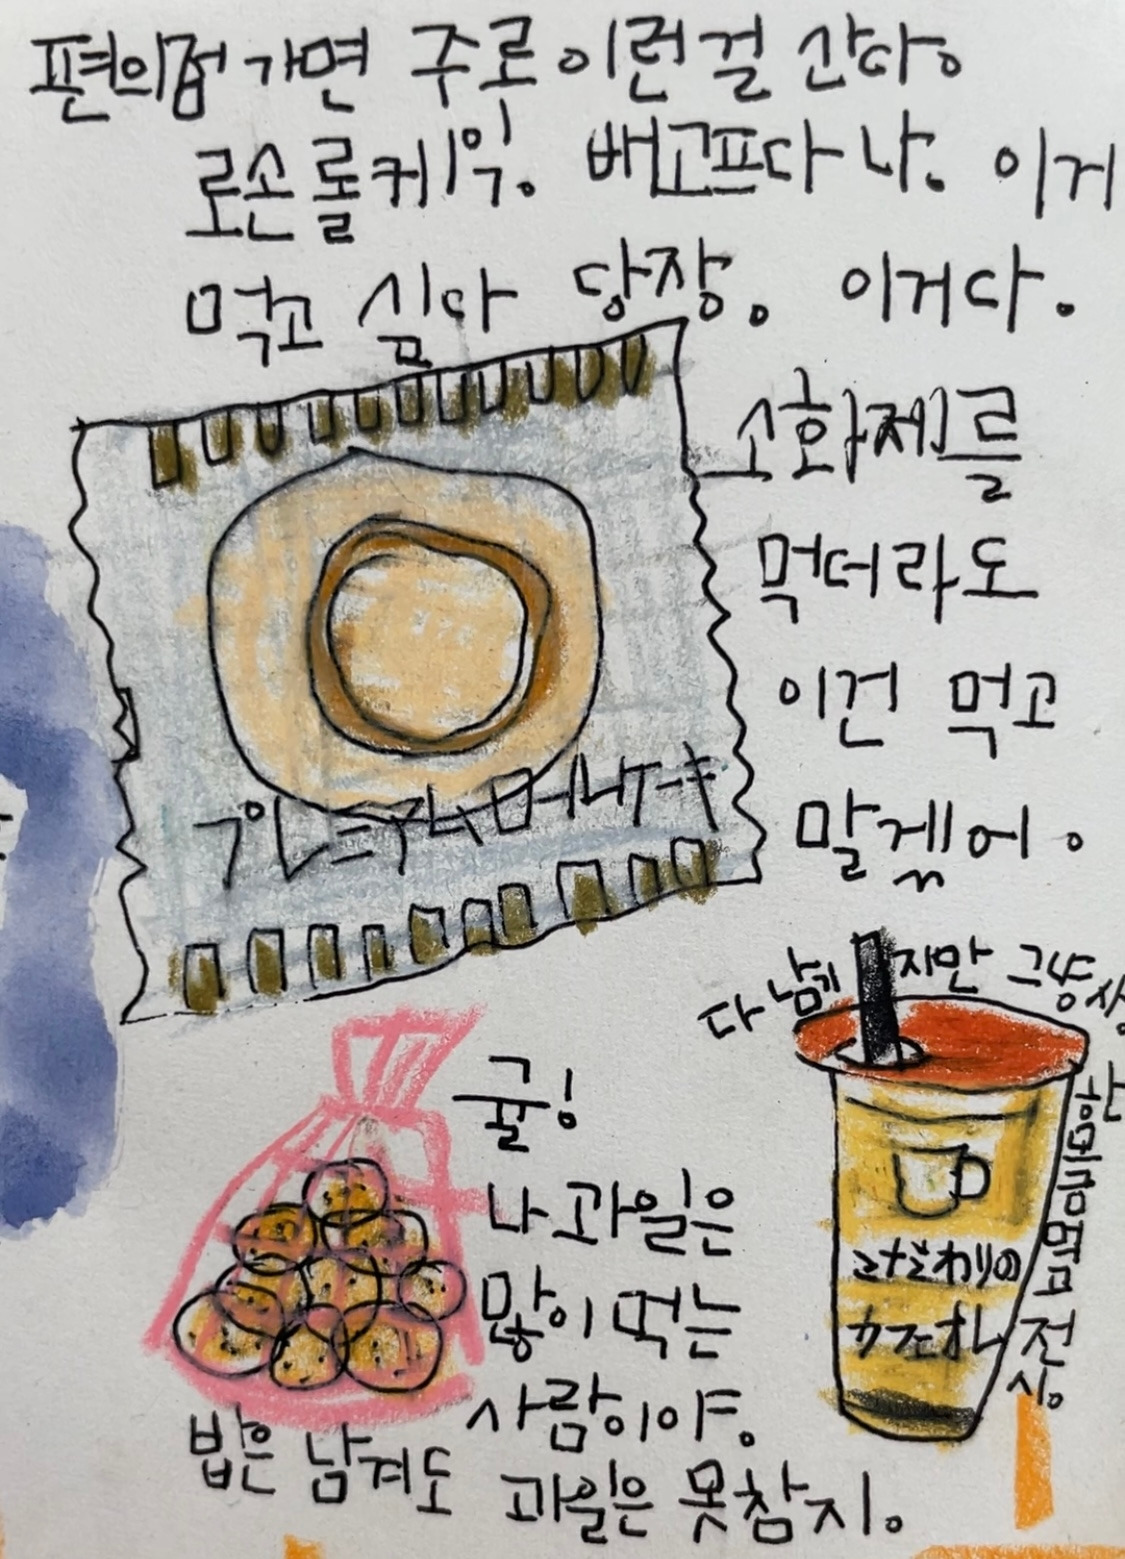 편의점 가면 주로 이런걸 산다.
로손 롤케익. 배고프다 나. 이거
먹고 싶다 당장. 이거다.
소화제를
먹더라도
이건 먹고
말겠어.
プレミアムロールケーキ
다 남기지만 그냥 상
한
음미금 먹고 전
시.
こだわりの
カフェオレ
귤!
나 과일은
많이 먹는
사람이야.
밥은 남겨도 과일은 못참지.